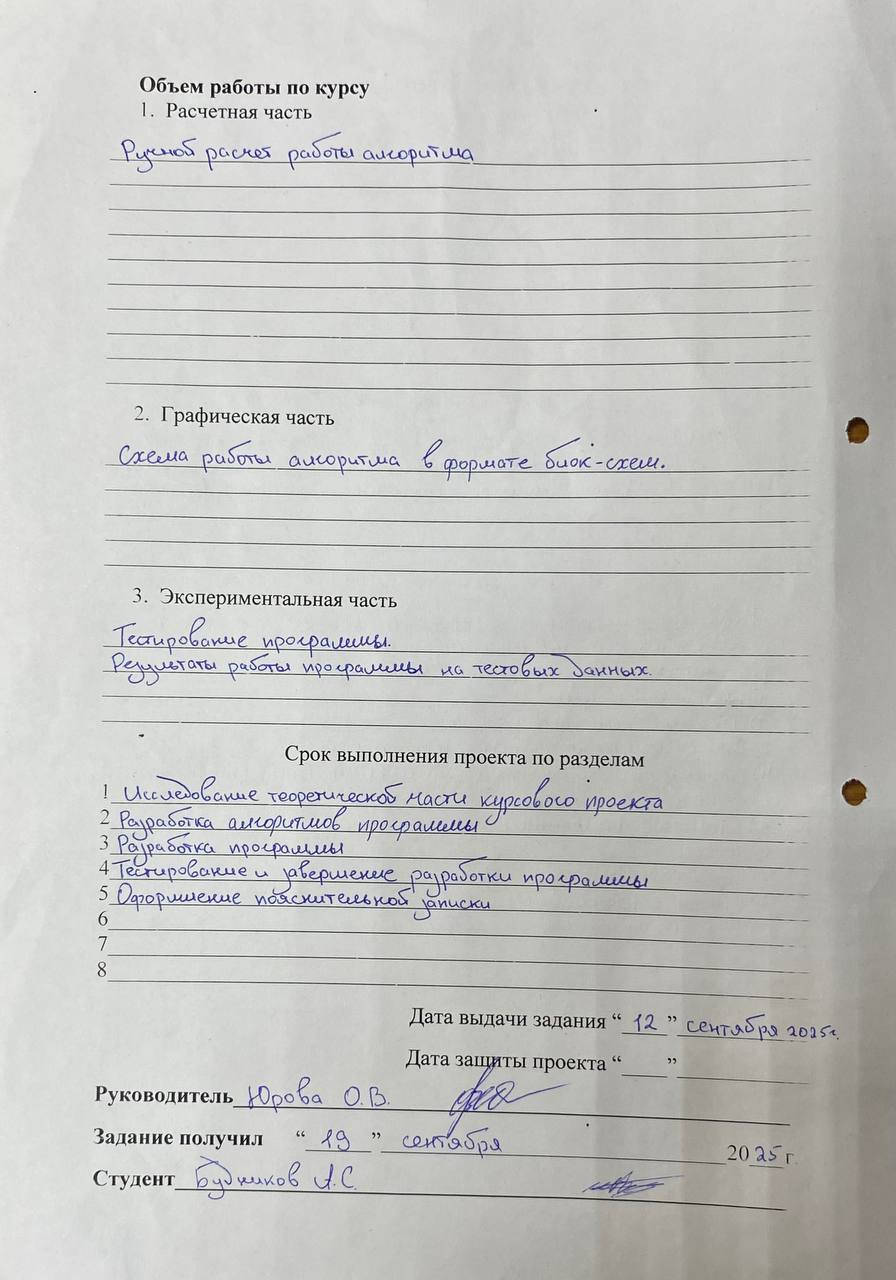 Объем работы по курсу
1. Расчетная часть
Ручной расчет работы алгоритма
2. Графическая часть
Схема работы алгоритма в формате блок-схем.
3. Экспериментальная часть
Тестирование программы.
Результаты работы программы на тестовых данных.
Срок выполнения проекта по разделам
1 Исследование теоретической части курсового проекта
2 Разработка алгоритмов программы
3 Разработка программы
4 Тестирование и завершение разработки программы
5 Оформление пояснительной записки
6
7
8
Дата выдачи задания “ 12 ” сентября 2025г.
Дата защиты проекта “ ”
Руководитель Юрова О.В.
Задание получил “ 19 ” сентября 2025 г.
Студент Будников А.С.